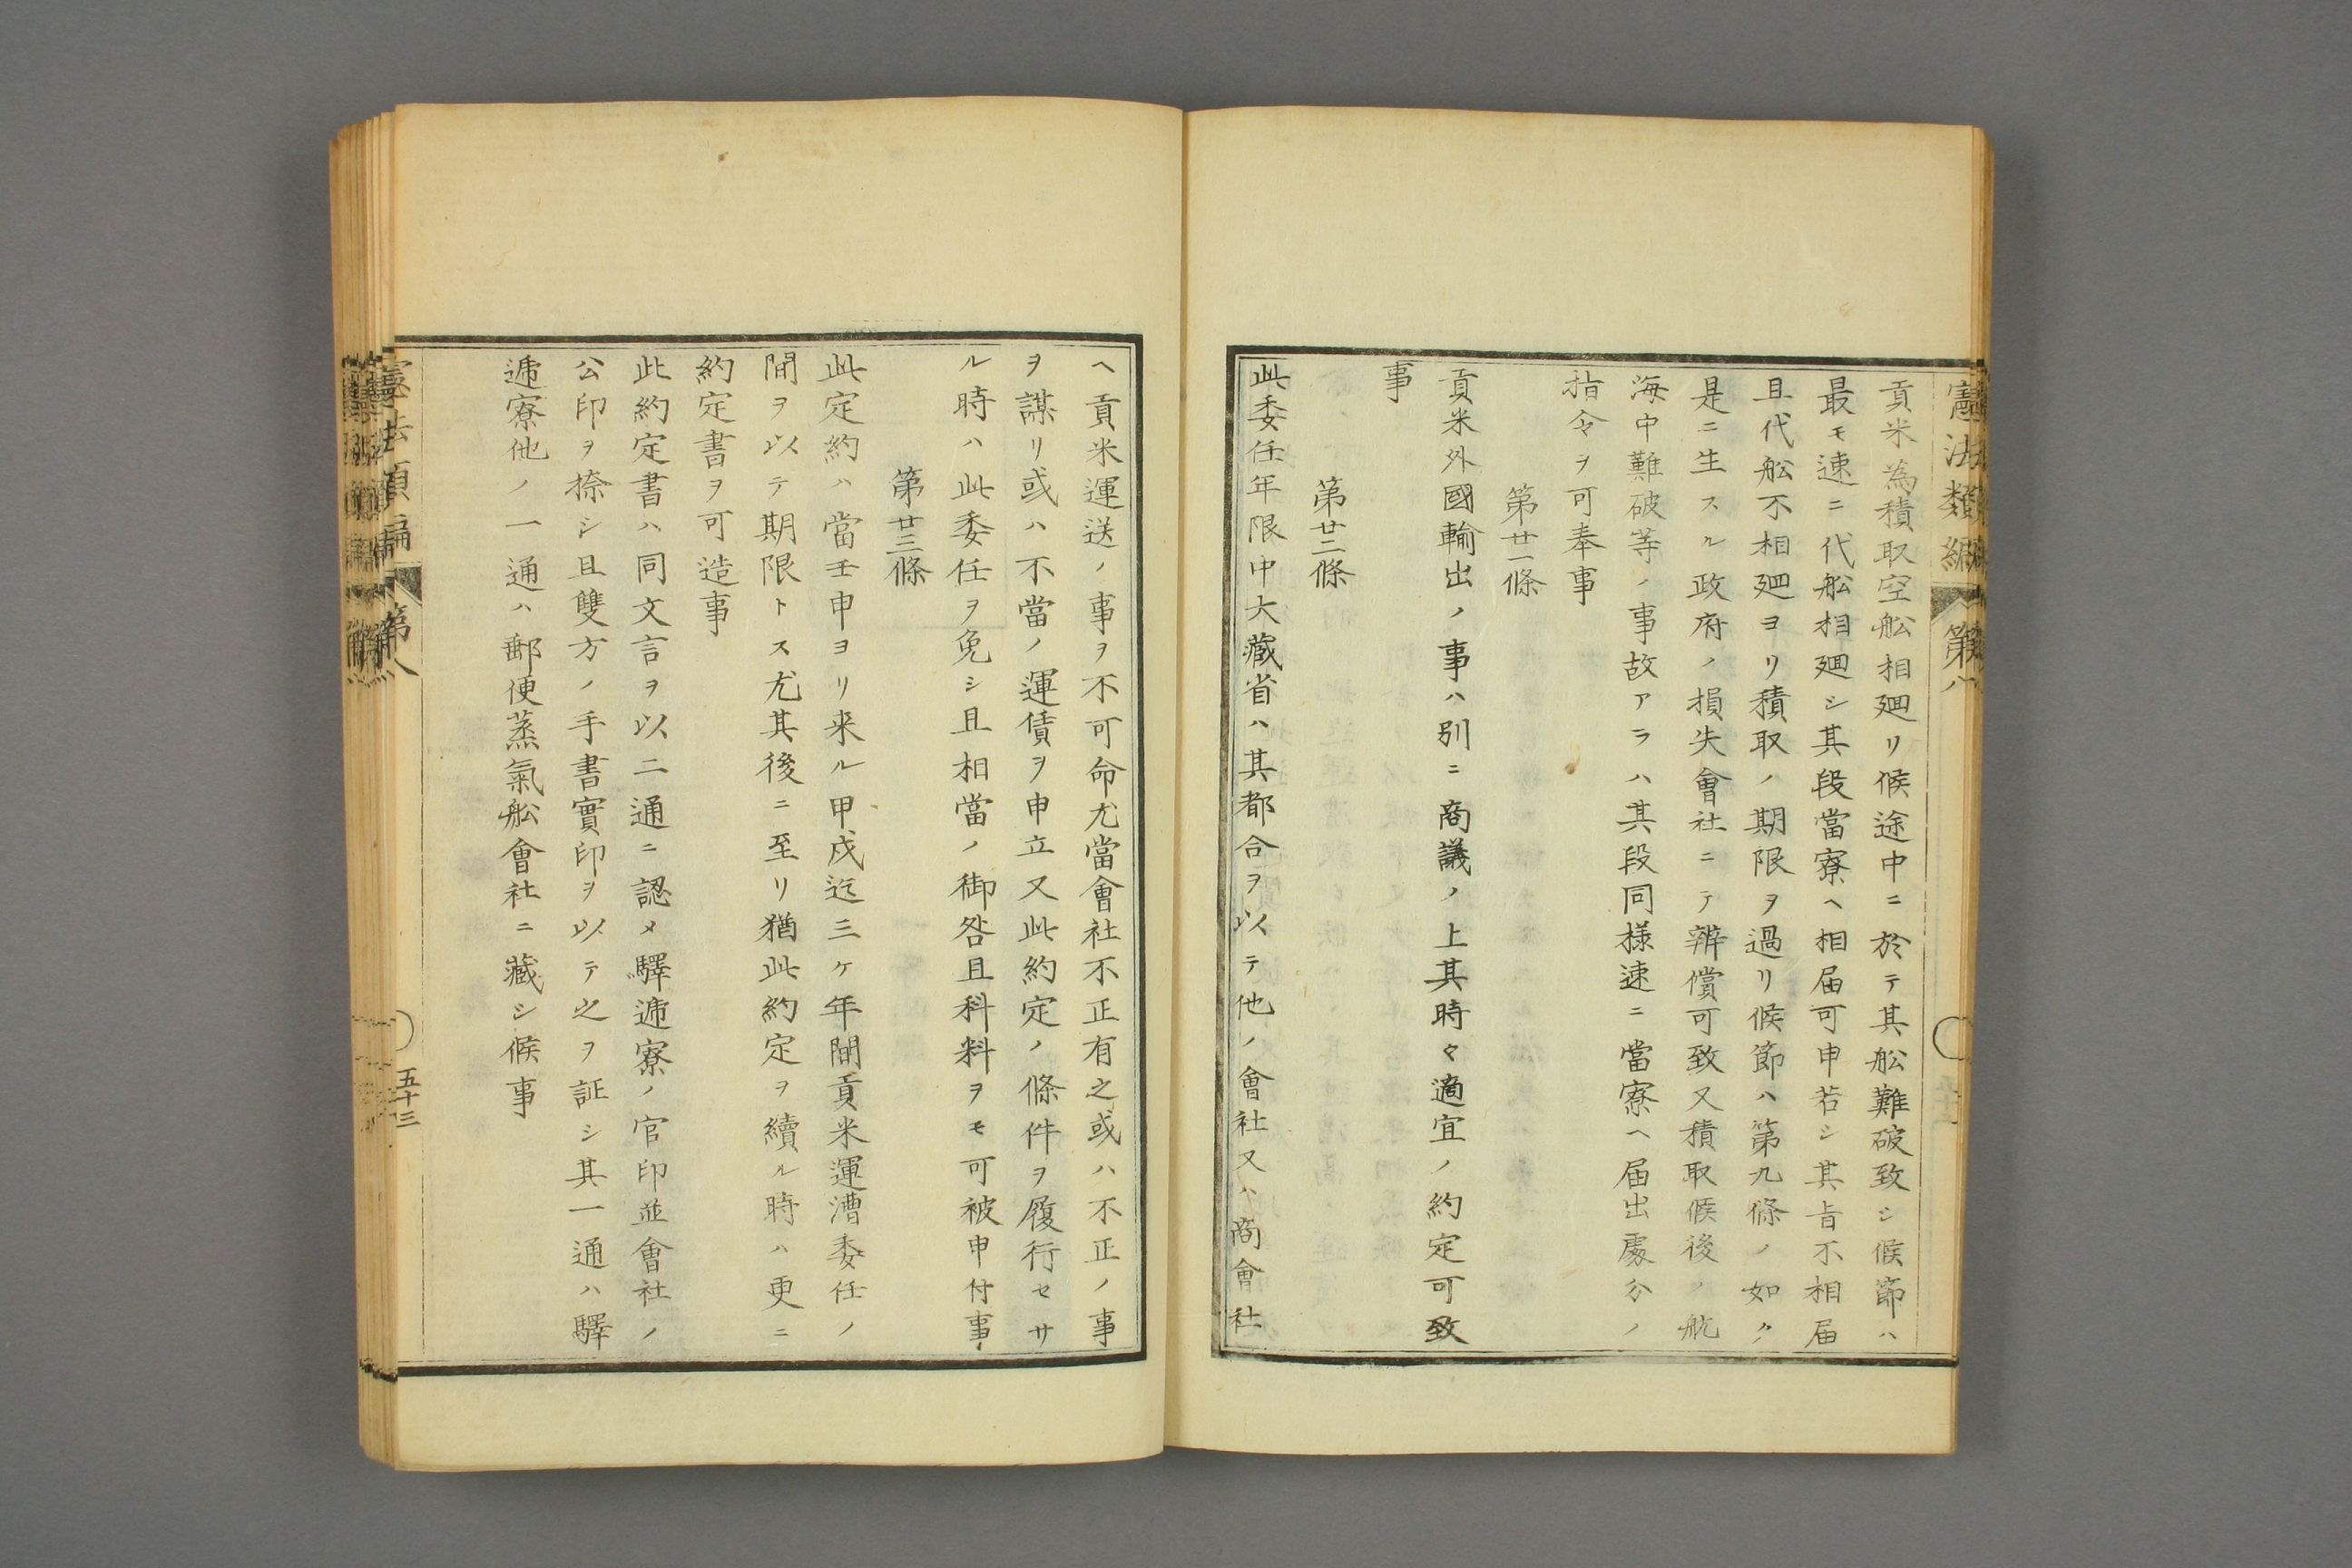 憲法類編 第八
貢米為積取空舩相廻リ候途中ニ於テ其舩難破致シ候節ハ
最モ速ニ代舩相廻シ其段當寮ヘ相届可申若シ其旨不相届
且代舩不相廻ヨリ積取ノ期限ヲ過リ候節ハ第九條ノ如ク
是ニ生スル政府ノ損失會社ニテ辨償可致又積取候後ノ航
海中難破等ノ事故アラハ其段同様速ニ當寮ヘ届出處分ノ
指令ヲ可奉事
第廿一條
貢米外國輸出ノ事ハ別ニ商議ノ上其時々適宜ノ約定可致
事
第廿二條
此委任年限中大藏省ハ其都合ヲ以テ他ノ會社又ハ商會社
ヘ貢米運送ノ事ヲ不可命尤當會社不正有之或ハ不正ノ事
ヲ謀リ或ハ不當ノ運賃ヲ申立又此約定ノ條件ヲ履行セサ
ル時ハ此委任ヲ免シ且相當ノ御咎且科料ヲモ可被申付事
第廿三條
此定約ハ當壬申ヨリ来ル甲戌迄三ケ年間貢米運漕委任ノ
間ヲ以テ期限トス尤其後ニ至リ猶此約定ヲ續ル時ハ更ニ
約定書ヲ可造事
此約定書ハ同文言ヲ以二通ニ認メ驛逓寮ノ官印並會社ノ
公印ヲ捺シ且雙方ノ手書實印ヲ以テ之ヲ証シ其一通ハ驛
逓寮他ノ一通ハ郵便蒸氣舩會社ニ藏シ候事
憲法類編 第八 五十三